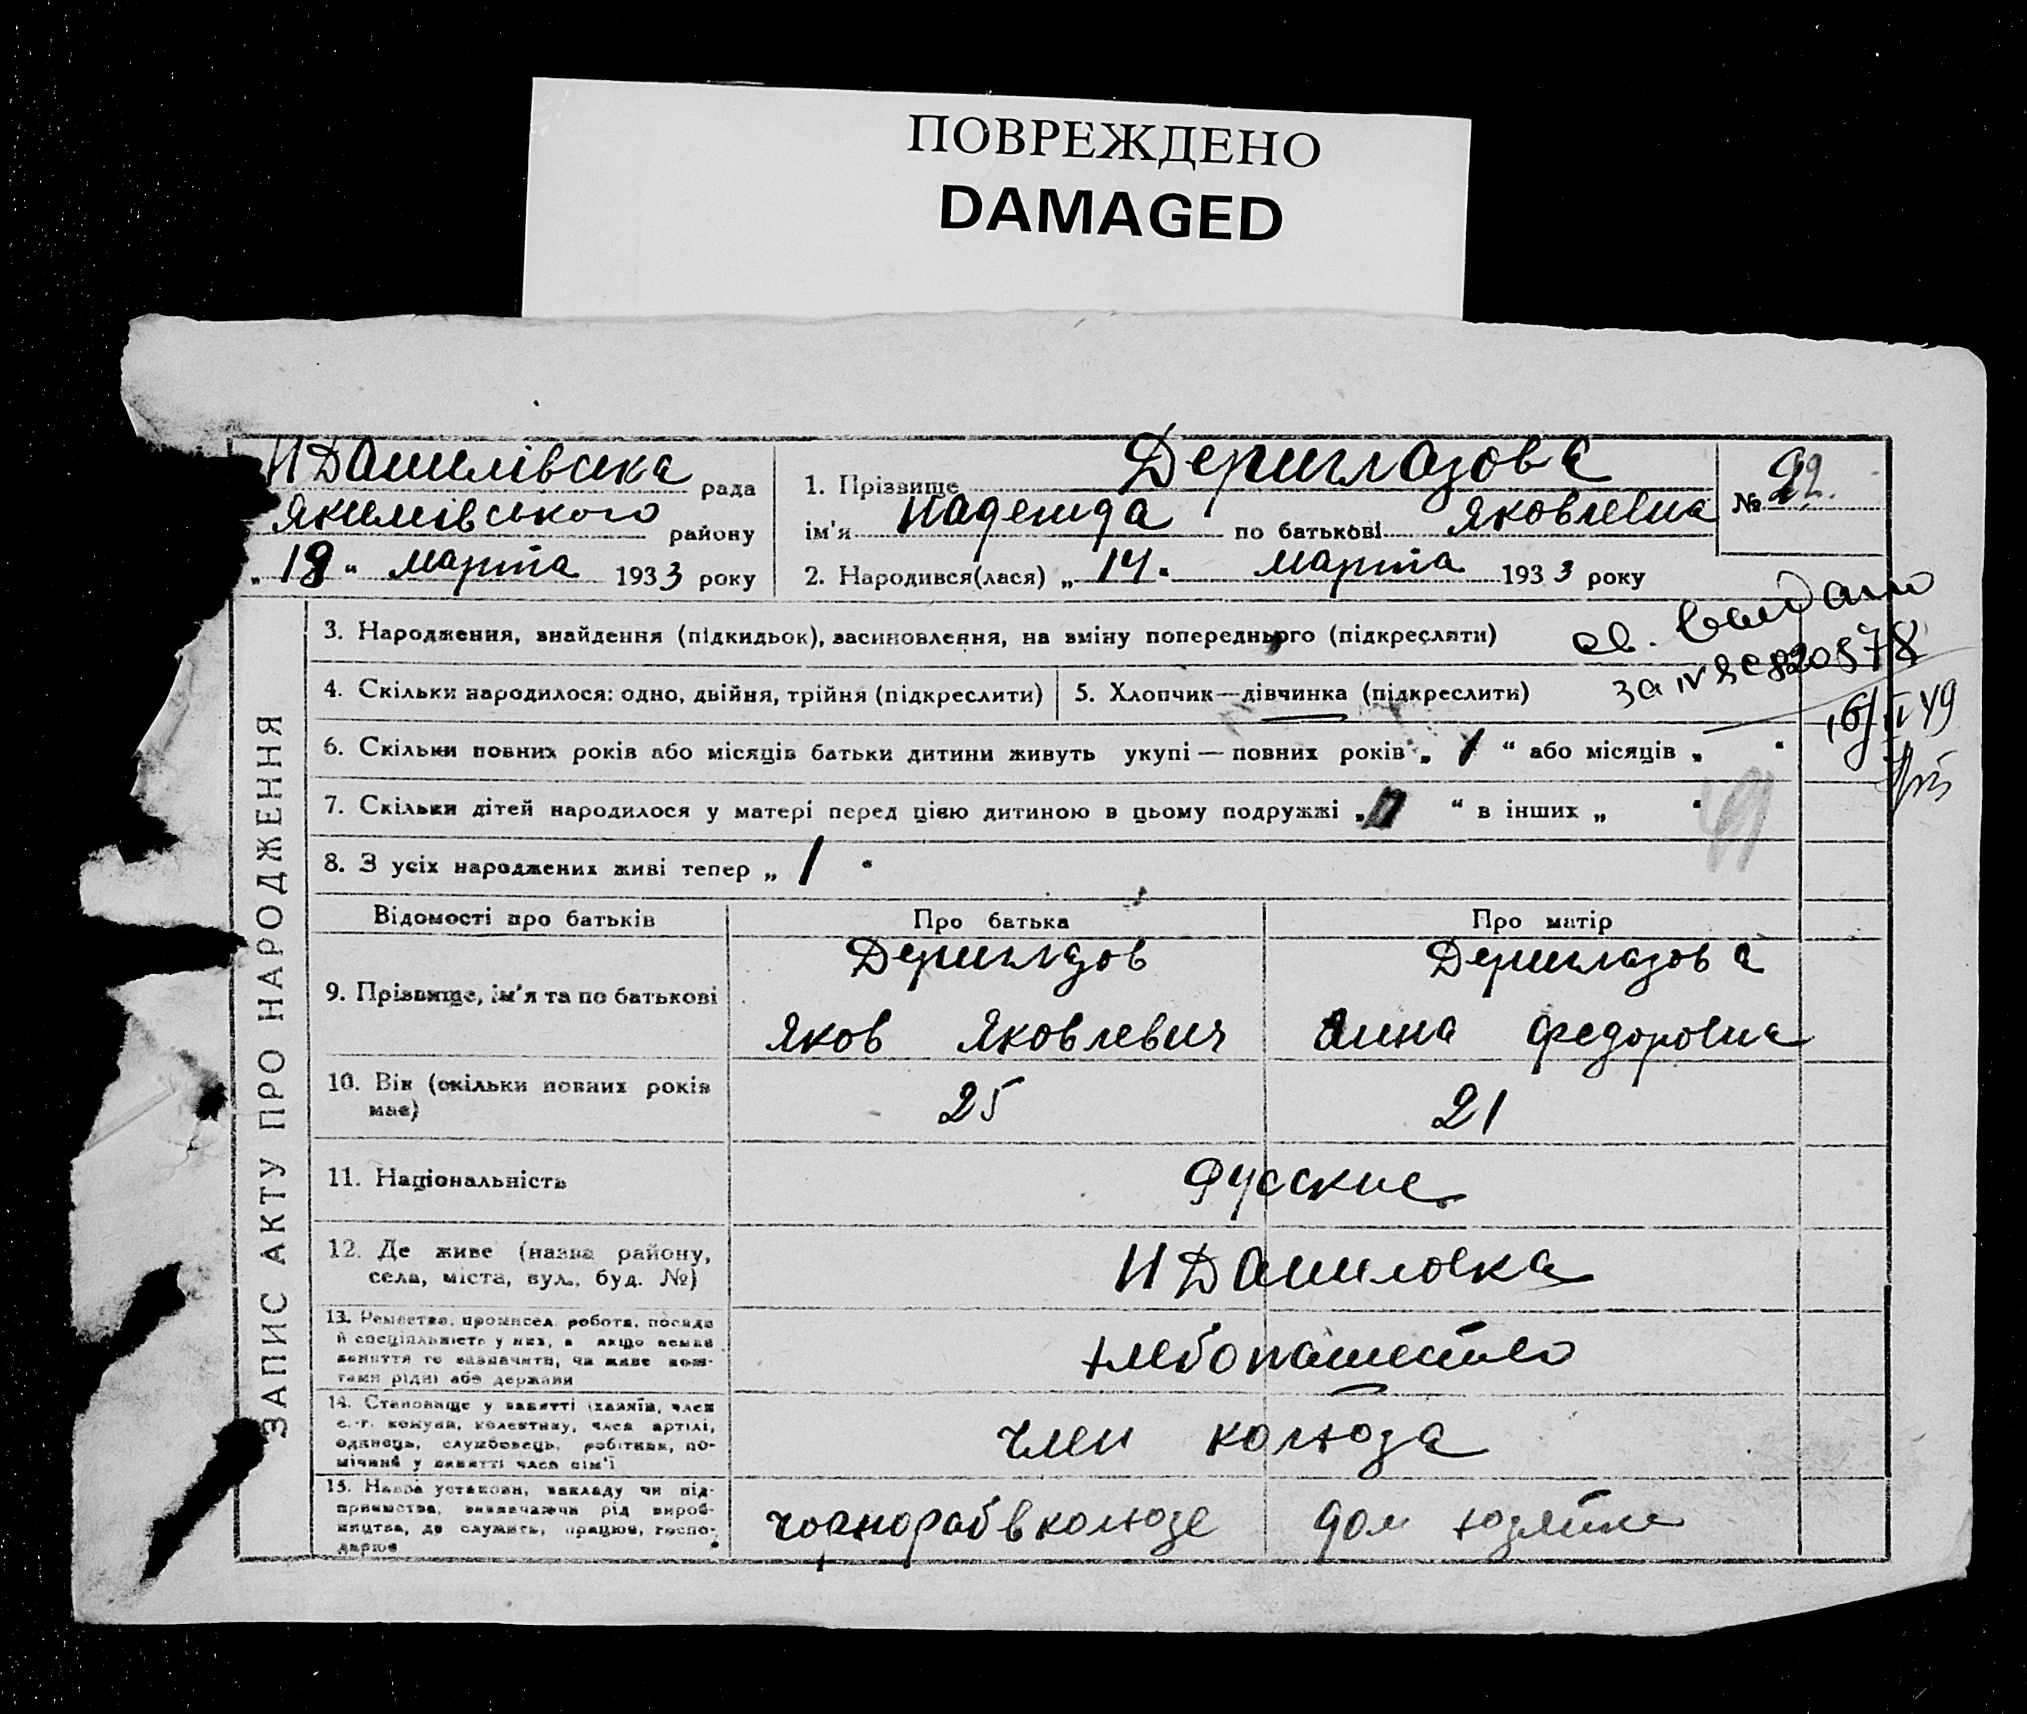 ПОВРЕЖДЕНО
DAMAGED
Н Данилівська рада
Якимівського району
„ 18 “ марта 1933 року
1. Прізвище Дериглазова
ім'я Надежда по батькові Яковлевна
2. Народився(лася) „ 14 “ марта 1933 року
№ 22.
ЗАПИС АКТУ ПРО НАРОДЖЕННЯ
3. Народження, знайдення (підкидьок), засиновлення, на зміну попереднього (підкреслити)
св. выдано
4. Скільки народилося: одно, двійня, трійня (підкреслити)
5. Хлопчик—дівчинка (підкреслити)
за №
49
6. Скільки повних років або місяців батьки дитини живуть укупі — повних років „ 1 “ або місяців „ “
7. Скільки дітей народилося у матері перед цією дитиною в цьому подружжі „ “ в інших „ “
8. З усіх народжених живі тепер „ 1 “
Відомості про батьків
Про батька
Про матір
9. Прізвище, ім'я та по батькові
Дериглазов
Яков Яковлевич
Дериглазова
Анна Федоровна
10. Вік (скільки повних років
має)
25
21
11. Національність
Русские
12. Де живе (назва району,
села, міста, вул., буд. №)
Н Даниловка
13. Ремество, промисел, робота, посада
й спеціяльність у них, а якщо немає
заняття то зазначити, чи живе кош-
тами рідні або держави
хлебопашество
14. Становище у занятті (хазяїн, член
с.-г. комуни, колективу, член артілі,
одинець, службовець, робітник, по-
мічний у занятті член сім'ї
член колхоза
15. Назва установи, закладу чи під-
приємства, визначаючи рід вироб-
ництва, де служить, працює, госпо-
дарює
чорнораб в колхозе
дом хозяйка